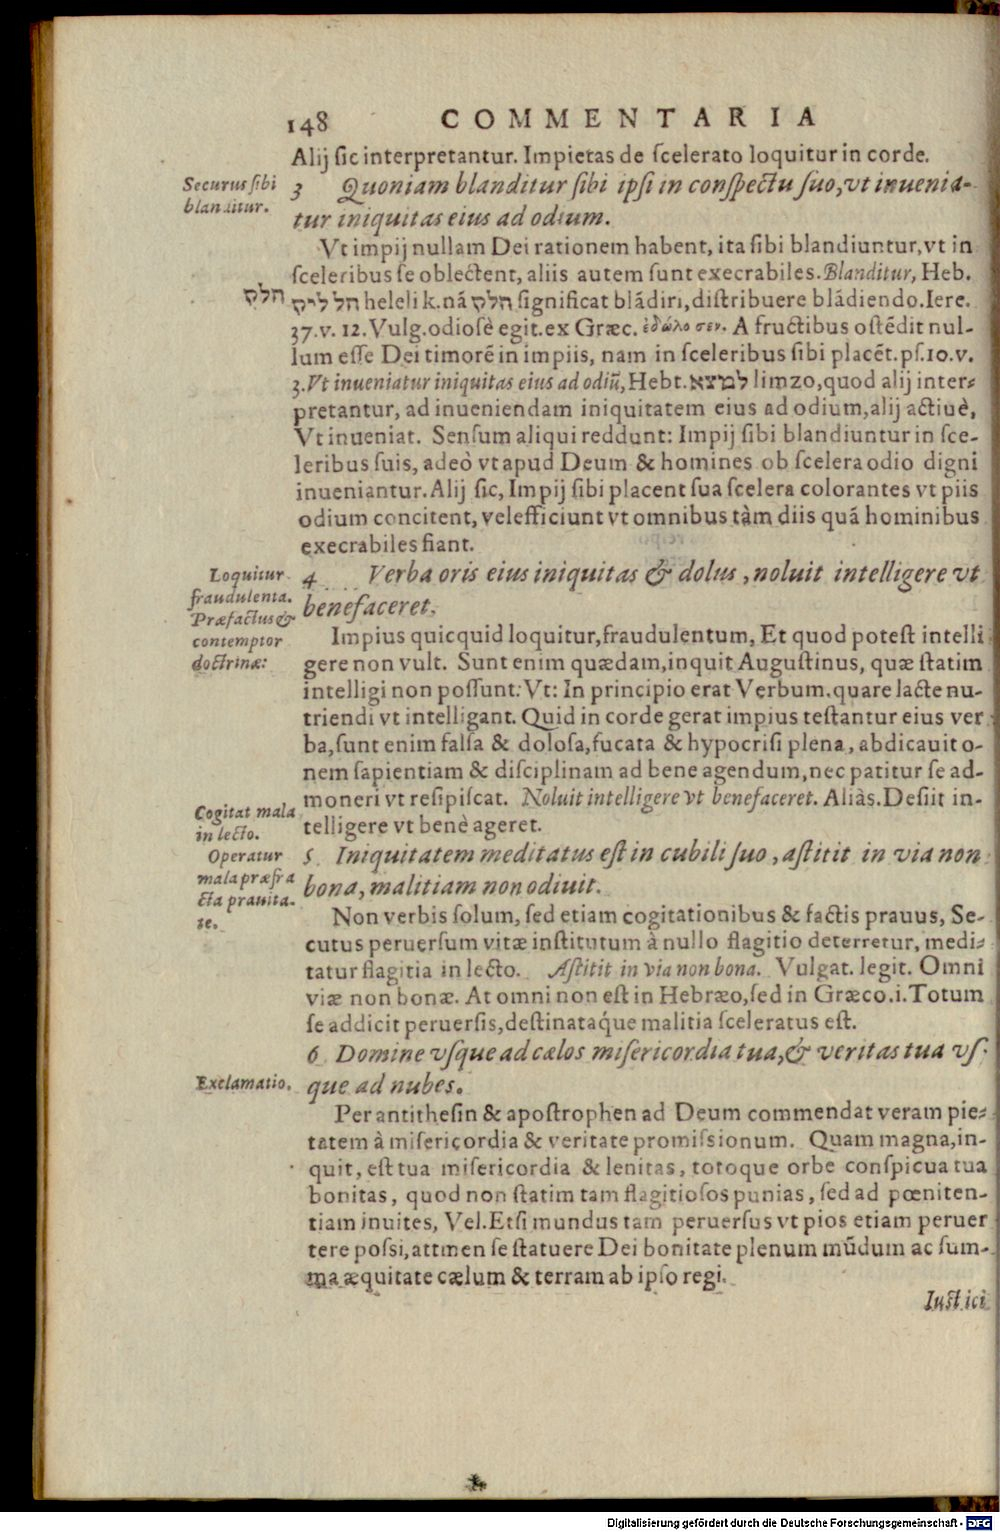 148 COMMENTARIA
Alij ſic interpretantur. Impietas de ſcelerato loquitur in corde.
Securus ſibi
blanditur.
3 Quoniam blanditur ſibi ipſi in conſpectu ſuo, vt inuenia-
tur iniquitas eius ad odium.
Vt impij nullam Dei rationem habent, ita ſibi blandiuntur, vt in
ſceleribus ſe oblectent, aliis autem ſunt execrabiles. Blanditur, Heb.
חלק
heleli k. nā חלק ſignificat blādiri, diſtribuere blādiendo. Iere.
37. v. 12. Vulg. odioſè egit. ex Græc. A fructibus oſtēdit nul-
lum eſſe Dei timorē in impiis, nam in ſceleribus ſibi placēt. pſ. 10. v.
3. Vt inueniatur iniquitas eius ad odiū, Hebr. למצא limzo, quod alij inter-
pretantur, ad inueniendam iniquitatem eius ad odium, alij actiuè,
Vt inueniat. Senſum aliqui reddunt: Impij ſibi blandiuntur in ſce-
leribus ſuis, adeò vt apud Deum & homines ob ſcelera odio digni
inueniantur. Alij ſic, Impij ſibi placent ſua ſcelera colorantes vt piis
odium concitent, vel efficiunt vt omnibus tàm diis quá hominibus
execrabiles fiant.
Loquitur
fraudulenta.
Præfactus &
contemptor
doctrinæ:
4 Verba oris eius iniquitas & dolus, noluit intelligere vt
benefaceret.
Impius quicquid loquitur, fraudulentum, Et quod poteſt intelli
gere non vult. Sunt enim quædam, inquit Auguſtinus, quæ ſtatim
intelligi non poſſunt: Vt: In principio erat Verbum. quare lacte nu-
triendi vt intelligant. Quid in corde gerat impius teſtantur eius ver
ba, ſunt enim falſa & doloſa, fucata & hypocriſi plena, abdicauit o-
nem ſapientiam & diſciplinam ad bene agendum, nec patitur ſe ad-
moneri vt reſipiſcat. Noluit intelligere vt benefaceret. Aliàs. Deſiit in-
telligere vt benè ageret.
Cogitat mala
in lecto.
Operatur
mala præfra
cta prauita-
te.
5 Iniquitatem meditatus eſt in cubili ſuo, aſtitit in via non
bona, malitiam non odiuit.
Non verbis ſolum, ſed etiam cogitationibus & factis prauus, Se-
cutus peruerſum vitæ inſtitutum à nullo flagitio deterretur, medi-
tatur flagitia in lecto. Aſtitit in via non bona. Vulgat. legit. Omni
viæ non bonæ. At omni non eſt in Hebræo, ſed in Græco. i. Totum
ſe addicit peruerſis, deſtinatáque malitia ſceleratus eſt.
6 Domine vſque ad cælos miſericordia tua, & veritas tua vſ-
que ad nubes.
Exclamatio.
Per antitheſin & apoſtrophen ad Deum commendat veram pie-
tatem à miſericordia & veritate promiſsionum. Quam magna, in-
quit, eſt tua miſericordia & lenitas, totoque orbe conſpicua tua
bonitas, quod non ſtatim tam flagitioſos punias, ſed ad pœniten-
tiam inuites, Vel. Etſi mundus tam peruerſus vt pios etiam peruer
tere poſsi, attmen ſe ſtatuere Dei bonitate plenum mūdum ac ſum-
ma æquitate cælum & terram ab ipſo regi.
Iuſtici
Digitalisierung gefördert durch die Deutsche Forschungsgemeinschaft - DFG